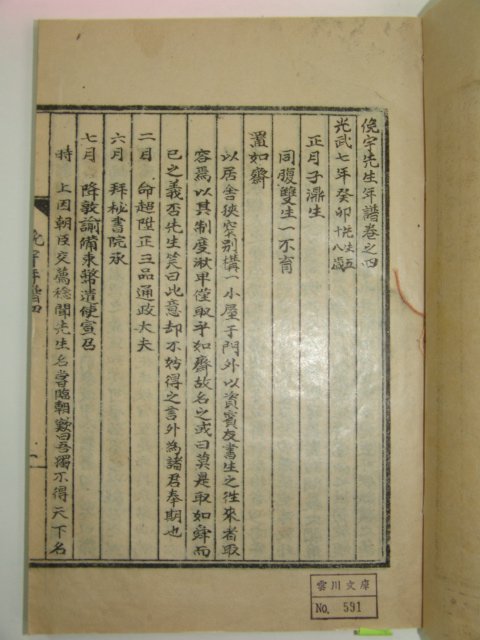 俛宇先生年譜卷之四
光武七年癸卯先生五十八歲
正月子㵾生
同腹雙生一不育
置如齋
以居舍狹窄别搆一小屋于門外以資賓友書生之徃來者取
容焉以其制度湫卑僅取乎如齋故名之或曰莫是取如舜而
已之義否先生笑曰此意却不妨得之言外為諸君奉期也
二月 命超陞正三品通政大夫
六月 拜秘書院丞
七月 降敦諭備束幣遣使宣召
時 上因朝臣交薦稔聞先生名當臨朝歎曰吾獨不得天下名
俛宇年譜四
雲川文庫
No. 591